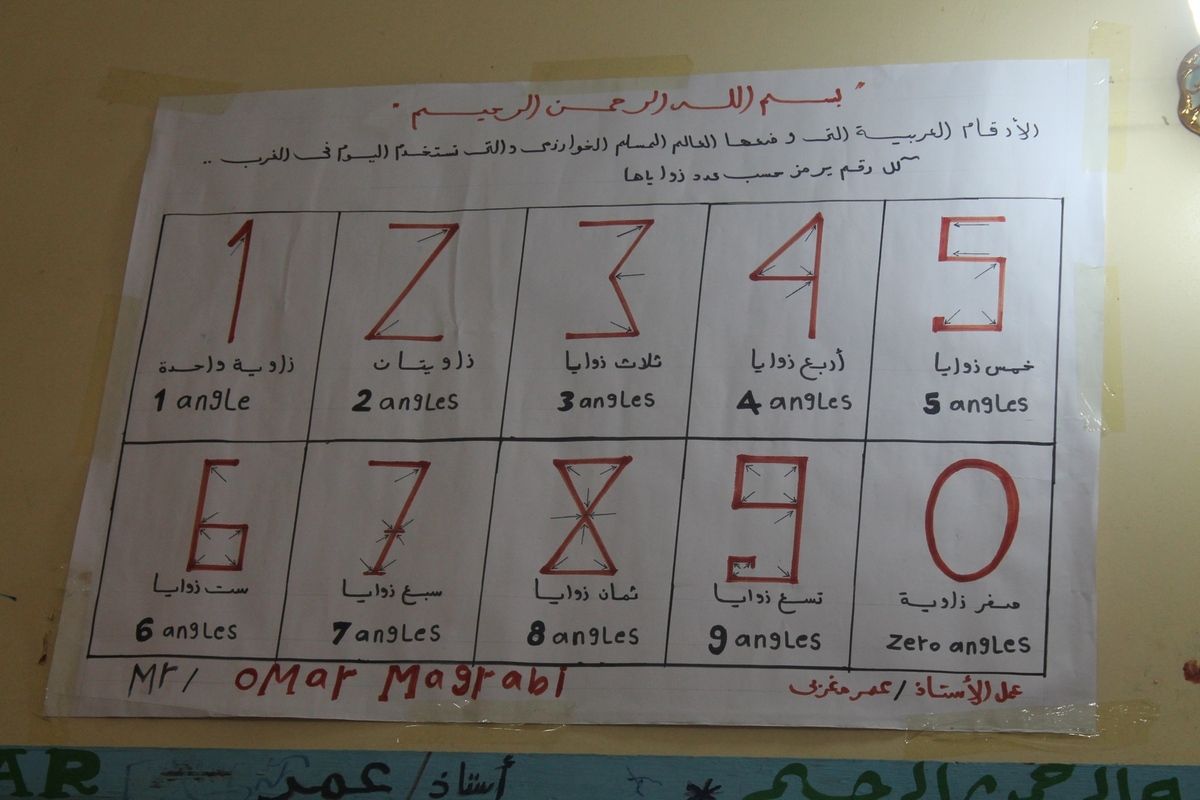 " بسم الله الرحمن الرحيم "
الأرقام العربية التى وضعها العالم المسلم الخوارزمى والتى تستخدم اليوم فى الغرب ..
كل رقم يرمز حسب عدد زواياها
1 2 3 4 5
زاوية واحدة زاويتان ثلاث زوايا أربع زوايا خمس زوايا
1 angle 2 angles 3 angles 4 angles 5 angles
6 7 8 9 0
ست زوايا سبع زوايا ثمان زوايا تسع زوايا صفر زاوية
6 angles 7 angles 8 angles 9 angles zero angles
Mr/ OMar Magrabi عمل الأستاذ / عمر مغربى
AR أستاذ/ عمر * الرحمن الرحيم